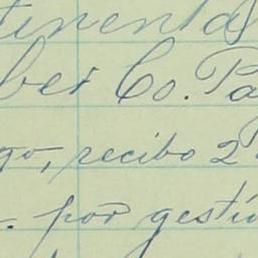 tinental
ber Co. Pa
go, recibo 2
. por gestí